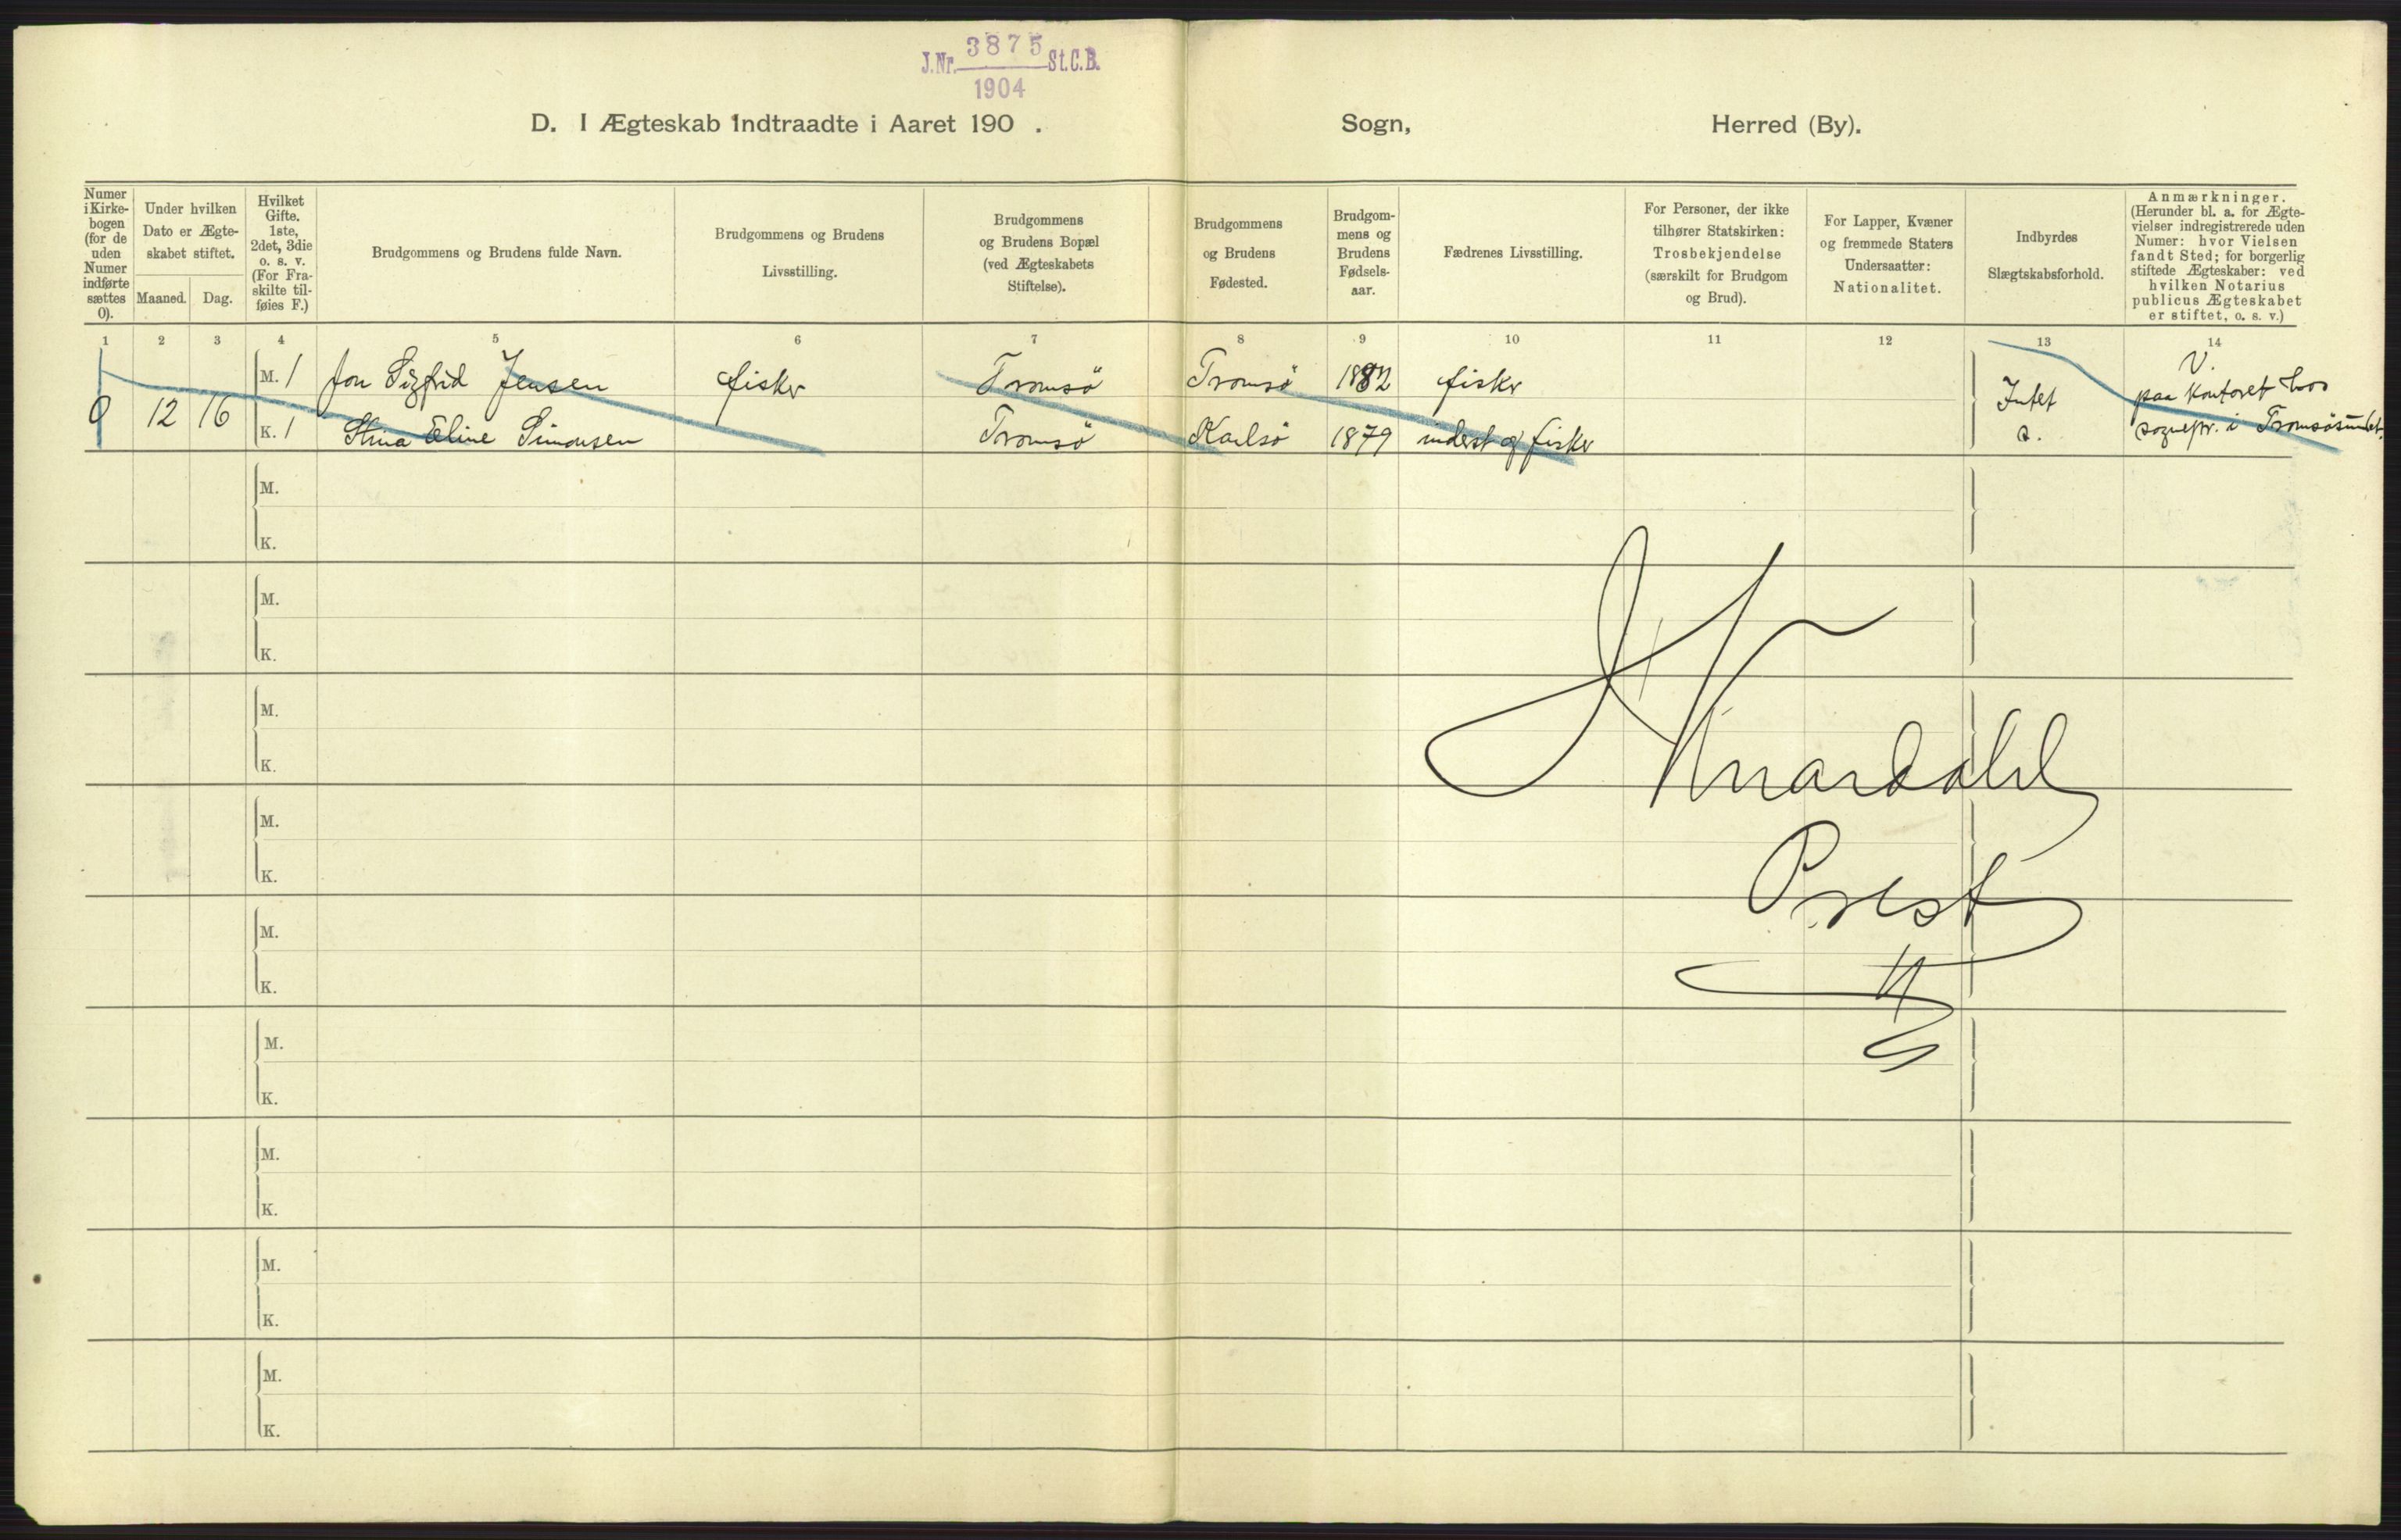 J.Nr. 3875 St.C.B.
1904
D. I Ægteskab Indtraadte i Aaret 190 . Sogn, Herred (By).
Numer i Kirkebogen (for de uden Numer indførte sættes 0).
Under hvilken Dato er Ægteskabet stiftet.
Maaned. Dag.
Hvilket Gifte. 1ste, 2det, 3die o. s. v. (For Fraskilte tilføies F.)
Brudgommens og Brudens fulde Navn.
Brudgommens og Brudens Livsstilling.
Brudgommens og Brudens Bopæl (ved Ægteskabets Stiftelse).
Brudgommens og Brudens Fødested.
Brudgommens og Brudens Fødselsaar.
Fædrenes Livsstilling.
For Personer, der ikke tilhører Statskirken: Trosbekjendelse (særskilt for Brudgom og Brud).
For Lapper, Kvæner og fremmede Staters Undersaatter: Nationalitet.
Indbyrdes Slægtskabsforhold.
Anmærkninger. (Herunder bl. a. for Ægtevielser indregistrerede uden Numer: hvor Vielsen fandt Sted; for borgerlig stiftede Ægteskaber: ved hvilken Notarius publicus Ægteskabet er stiftet, o. s. v.)
1 2 3 4 5 6 7 8 9 10 11 12 13 14
M. 1 Jon Sigfrid Jensen fisker Tromsö Tromsö 1882 fisker
0 12 16 K. 1 Stina Eline Simonsen Tromsö Karlsö 1879 inderst og fisker
Intet
s.
V.
paa Kontoret hos
sognepr. i Tromsösundet.
M.
K.
M.
K.
M.
K.
M.
K.
M.
K.
M.
K.
M.
K.
M.
K.
M.
K.
Knardahl
Prest